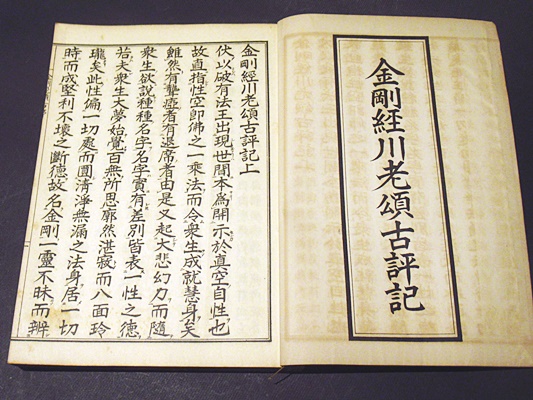 金剛經川老頌古評記
金剛經川老頌古評記上
伏以破有法王出現世間本為開示於真空自性也
故直指性空即佛之一乘法而令衆生成就慧身矣
雖然有聾瘂者有退席者由是又起大悲幻力而隨
衆生欲說種種名字名字實有差別皆表一性之德
若夫衆生大夢始覺百無所思廓然湛寂而八面玲
瓏矣此性徧一切處而圓清淨無漏之法身居一切
時而成堅利不壞之斷德故名金剛一靈不昧而辨